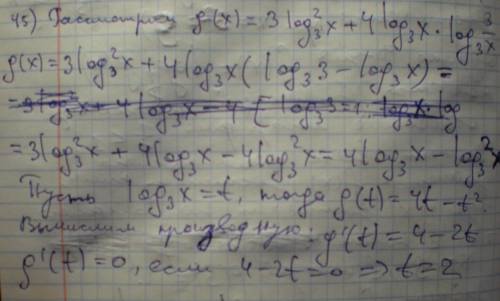 45) Рассмотрим f(x) = 3 log₃²x + 4 log₃x · log₃ 3/x
f(x) = 3 log₃²x + 4 log₃x (log₃3 − log₃x) =
= 3 log₃²x + 4 log₃x − 4 log₃²x = 4 log₃x − log₃²x
Пусть log₃x = t, тогда f(t) = 4t − t².
Вычислим производную: f'(t) = 4 − 2t
f'(t) = 0, если 4 − 2t = 0 ⇒ t = 2